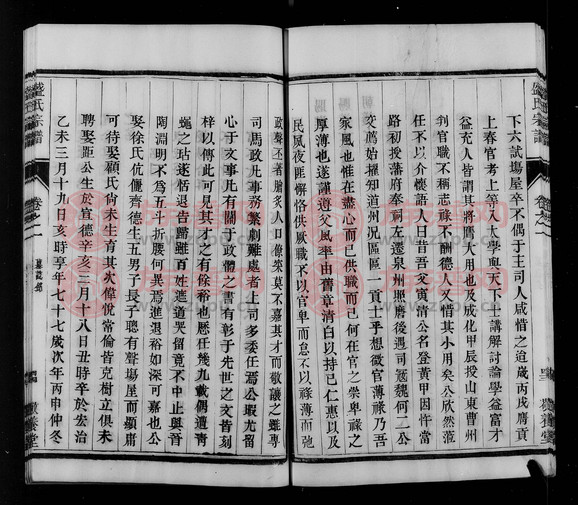 下六試塲屋卒不偶于主司人咸惜之迨歲丙戌膺貢
上春官考上等入太學與天下士講解討論學益富才
益充人皆謂其將鷹大用也及成化甲辰授山東曹州
判官職不稱志祿不酬德人又惜其小用矣公欣然蒞
任不以介懷語人曰昔吾父寅清公名登黃甲因淬
路初授藩府奉祠左遷泉州照磨後遇司寇魏何二公
交薦始擢知道州况區區一貢士乎想微官薄祿乃吾
家風也惟在盡心而已供職而已何在官之崇卑祿之
厚薄也遂謹遵父風率由舊章清白以持己仁惠以及
民風夜匪懈恪供厥職不以官卑而怠不以祿薄而弛
政聲丕著膾炙人口僚寀莫不嘉其才而敬讓之雖專
司馬政凡事務繁劇難處者上司多委任焉公暇尤留
心于文事凡有關于政體之書有彰于先世之文皆刻
梓以傳此可見其才之有餘裕也歷任幾九載偶遭靑
蠅之玷遂恬退告歸雖百姓遮道哭留竟不中止與吾
陶淵明不為五斗折腰何異焉進退裕如深可嘉也公
娶徐氏伉儷齊德生五男子長子聰有聲塲屋而顯庸
可待娶顧氏尙未生育其次偉悅當倫皆克樹立俱未
聘娶距公生於宣德辛亥二月十八日丑時卒於宏治
乙未三月十九日亥時享年七十七歲次年丙申仲冬
盛氏宗譜
卷之一
盛氏宗譜
卷之一